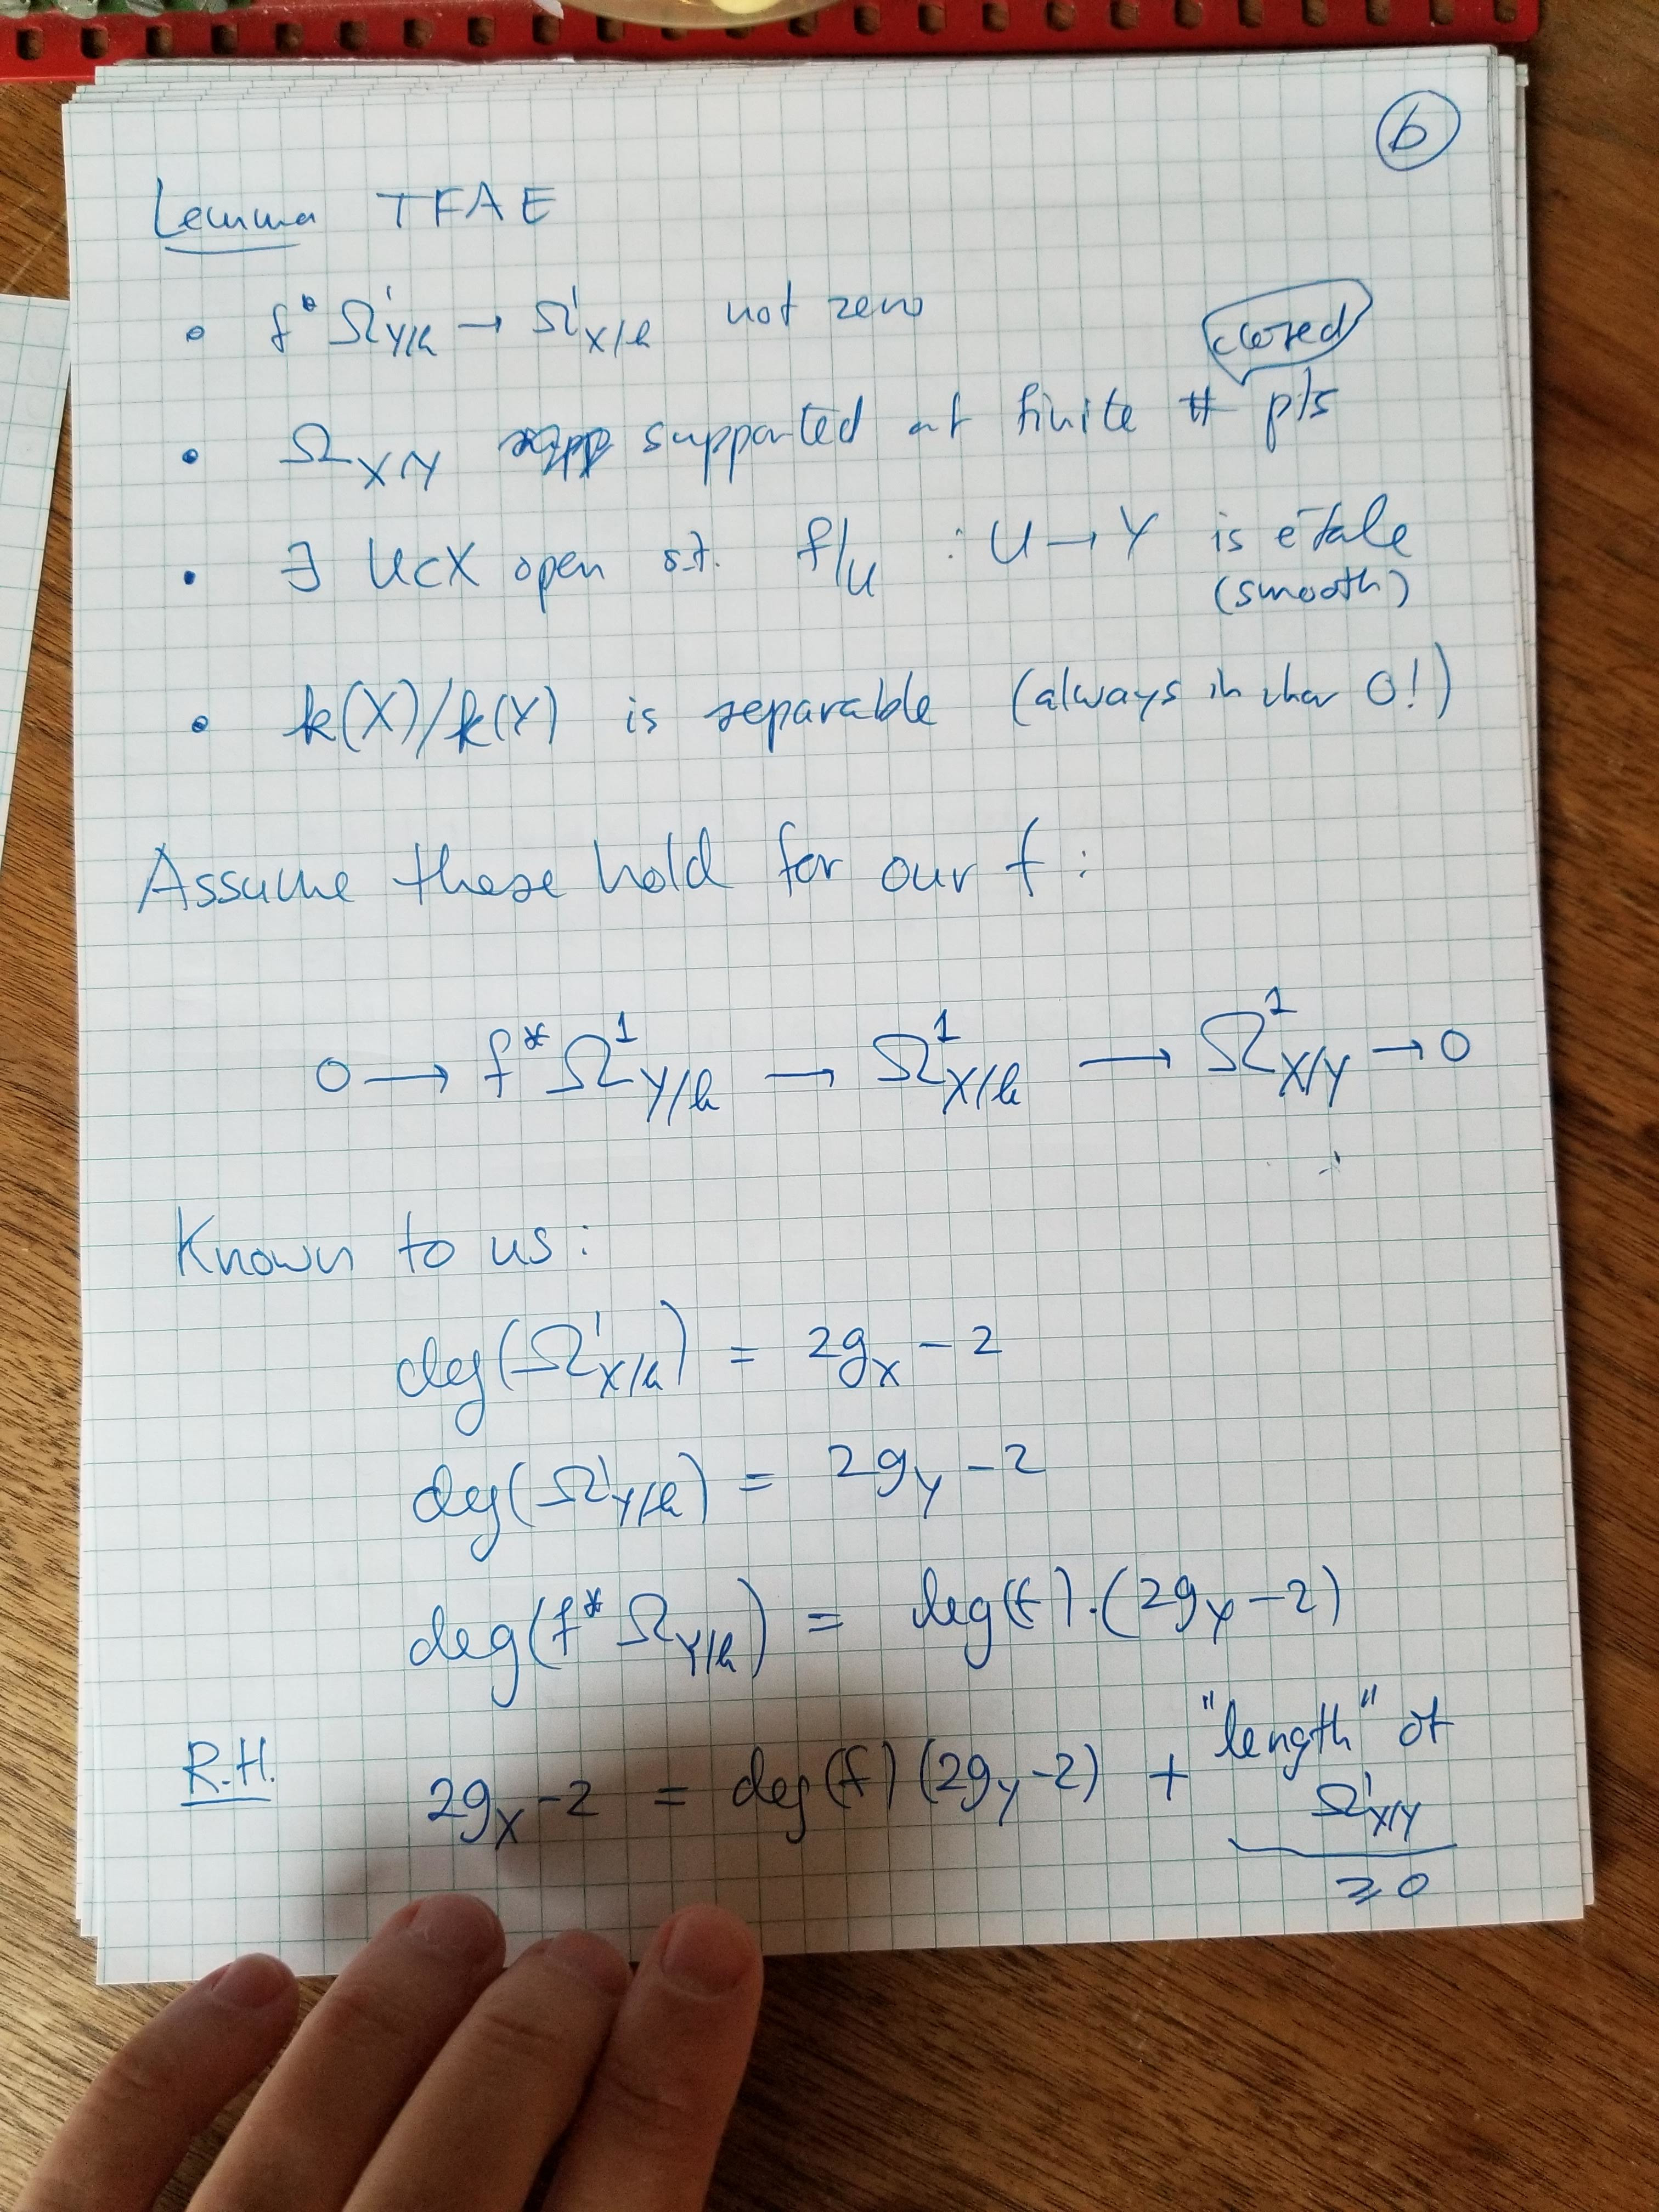 6
Lemma TFAE
• f* Ω¹_{Y/k} → Ω¹_{X/k} not zero
closed
• Ω_{X/Y} supported at finite # pts
• ∃ U⊂X open s.t. f|_U : U → Y is étale
(smooth)
• k(X)/k(Y) is separable (always in char 0!)
Assume these hold for our f:
0 → f* Ω¹_{Y/k} → Ω¹_{X/k} → Ω¹_{X/Y} → 0
Known to us:
deg(Ω¹_{X/k}) = 2g_X - 2
deg(Ω¹_{Y/k}) = 2g_Y - 2
deg(f* Ω_{Y/k}) = deg(f).(2g_Y - 2)
R.H. 2g_X - 2 = deg(f)(2g_Y - 2) + "length" of
Ω¹_{X/Y}
≥ 0